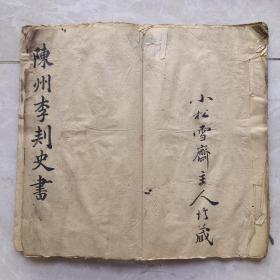 小松雪齋主人珍藏
陳州李刾史書